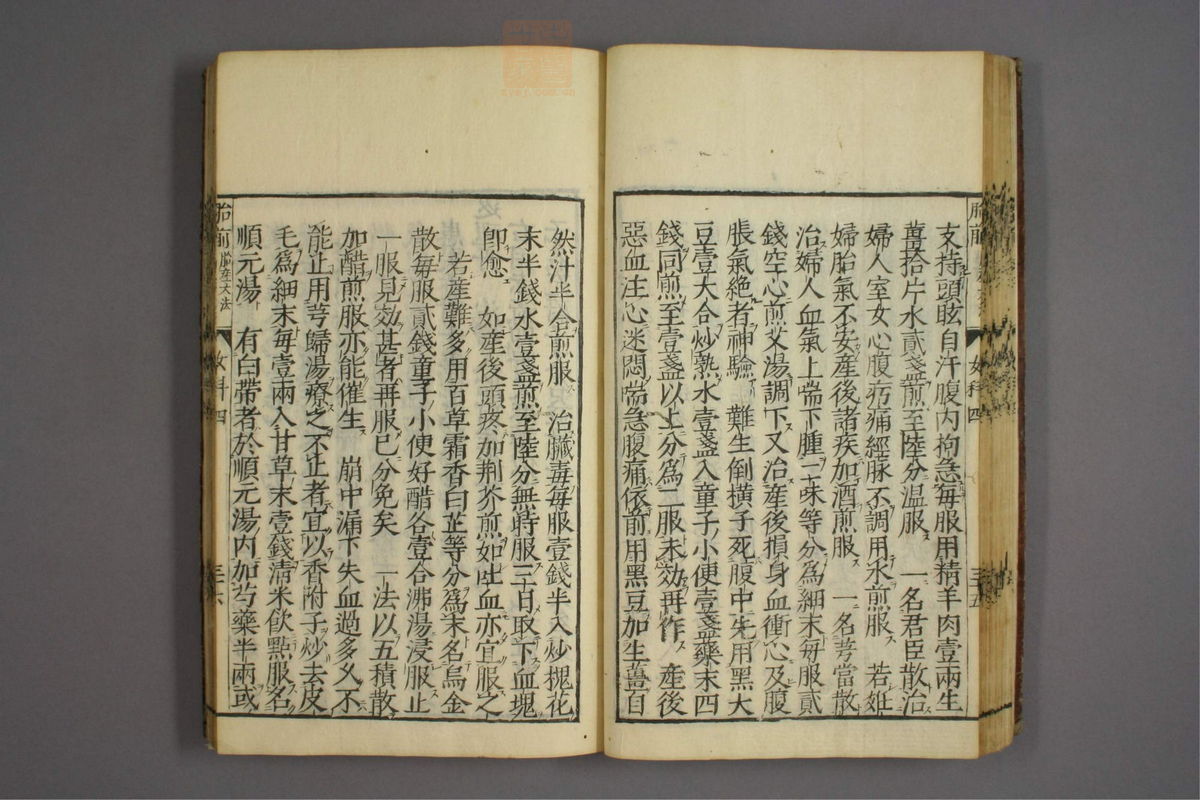 支持頭眩自汗腹内拘急每服用精羊肉壹兩生
薑拾片水貳盞煎至陸分温服　一名君臣散治
婦人室女心腹㽲痛經脉不調用水煎服　若姙
婦胎氣不安産後諸疾加酒煎服　一名芎當散
治婦人血氣上喘下腫二味等分爲細末每服貳
錢空心煎艾湯調下又治産後損身血衝心及腹
脹氣絶者神驗　難生倒横子死腹中先用黑大
豆壹大合炒熟水壹盞入童子小便壹盞藥末四
錢同煎至壹盞以上分爲二服未効再作　産後
惡血注心迷悶喘急腹痛依前用黑豆加生薑自
然汁半合煎服　治臟毒每服壹錢半入炒槐花
末半錢水壹盞煎至陸分無時服三日取下血塊
即愈　如産後頭疼加荆芥煎如吐血亦宜服之
若産難多用百草霜香白芷等分爲末名烏金
散每服貳錢童子小便好醋各壹合沸湯浸服止
一服見効甚者再服已分免矣　一法以五積散
加醋煎服亦能催生　崩中漏下失血過多久不
能止用芎歸湯療之不止者宜以香附子炒去皮
毛爲細末每壹兩入甘草末壹錢清米飲點服名
順元湯　有白帶者於順元湯内加芍藥半兩或
胎前
女科四
三十五
胎前
臨産大法
女科四
三十六